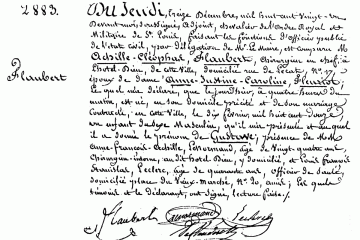 2883.
Flaubert
Du Jeudi, treize Décembre, mil huit cent vingt-un
Devant nous soussigné, Adjoint, chevalier de l'Ordre Royal et
Militaire de St Louis, faisant les fonctions d'Officier public
de l'état civil, par délégation de Mr le Maire, est comparu Mr
Achille-Cléophas, Flaubert, Chirurgien en chef, à
l'hôtel-Dieu, de cette Ville, domicilié rue de Lecat, No 17,
époux de dame Anne-Justine-Caroline, Fleuriot,
Lequel m'a déclaré, que le jour d'hier, à quatre heures du
matin, est né, en son domicile précité et de son mariage
Contracté, en cette Ville, le dix février mil huit cent douze
un enfant du sexe Masculin, qu'il m'a présenté et auquel
il a donné le prénom de Gustave, présence de MM.
Anne-François-Achille, âgé de vingt quatre ans,
Chirurgien interne, au dit hôtel-Dieu, y domicilié, et Louis François
Stanislas, Leclerc, âgé de quarante ans, officier de Santé,
domicilié place du Vieux-Marché, No 20, amis; lesquels
témoins et le déclarant, ont signé, lecture faite.
Flaubert Leclerc